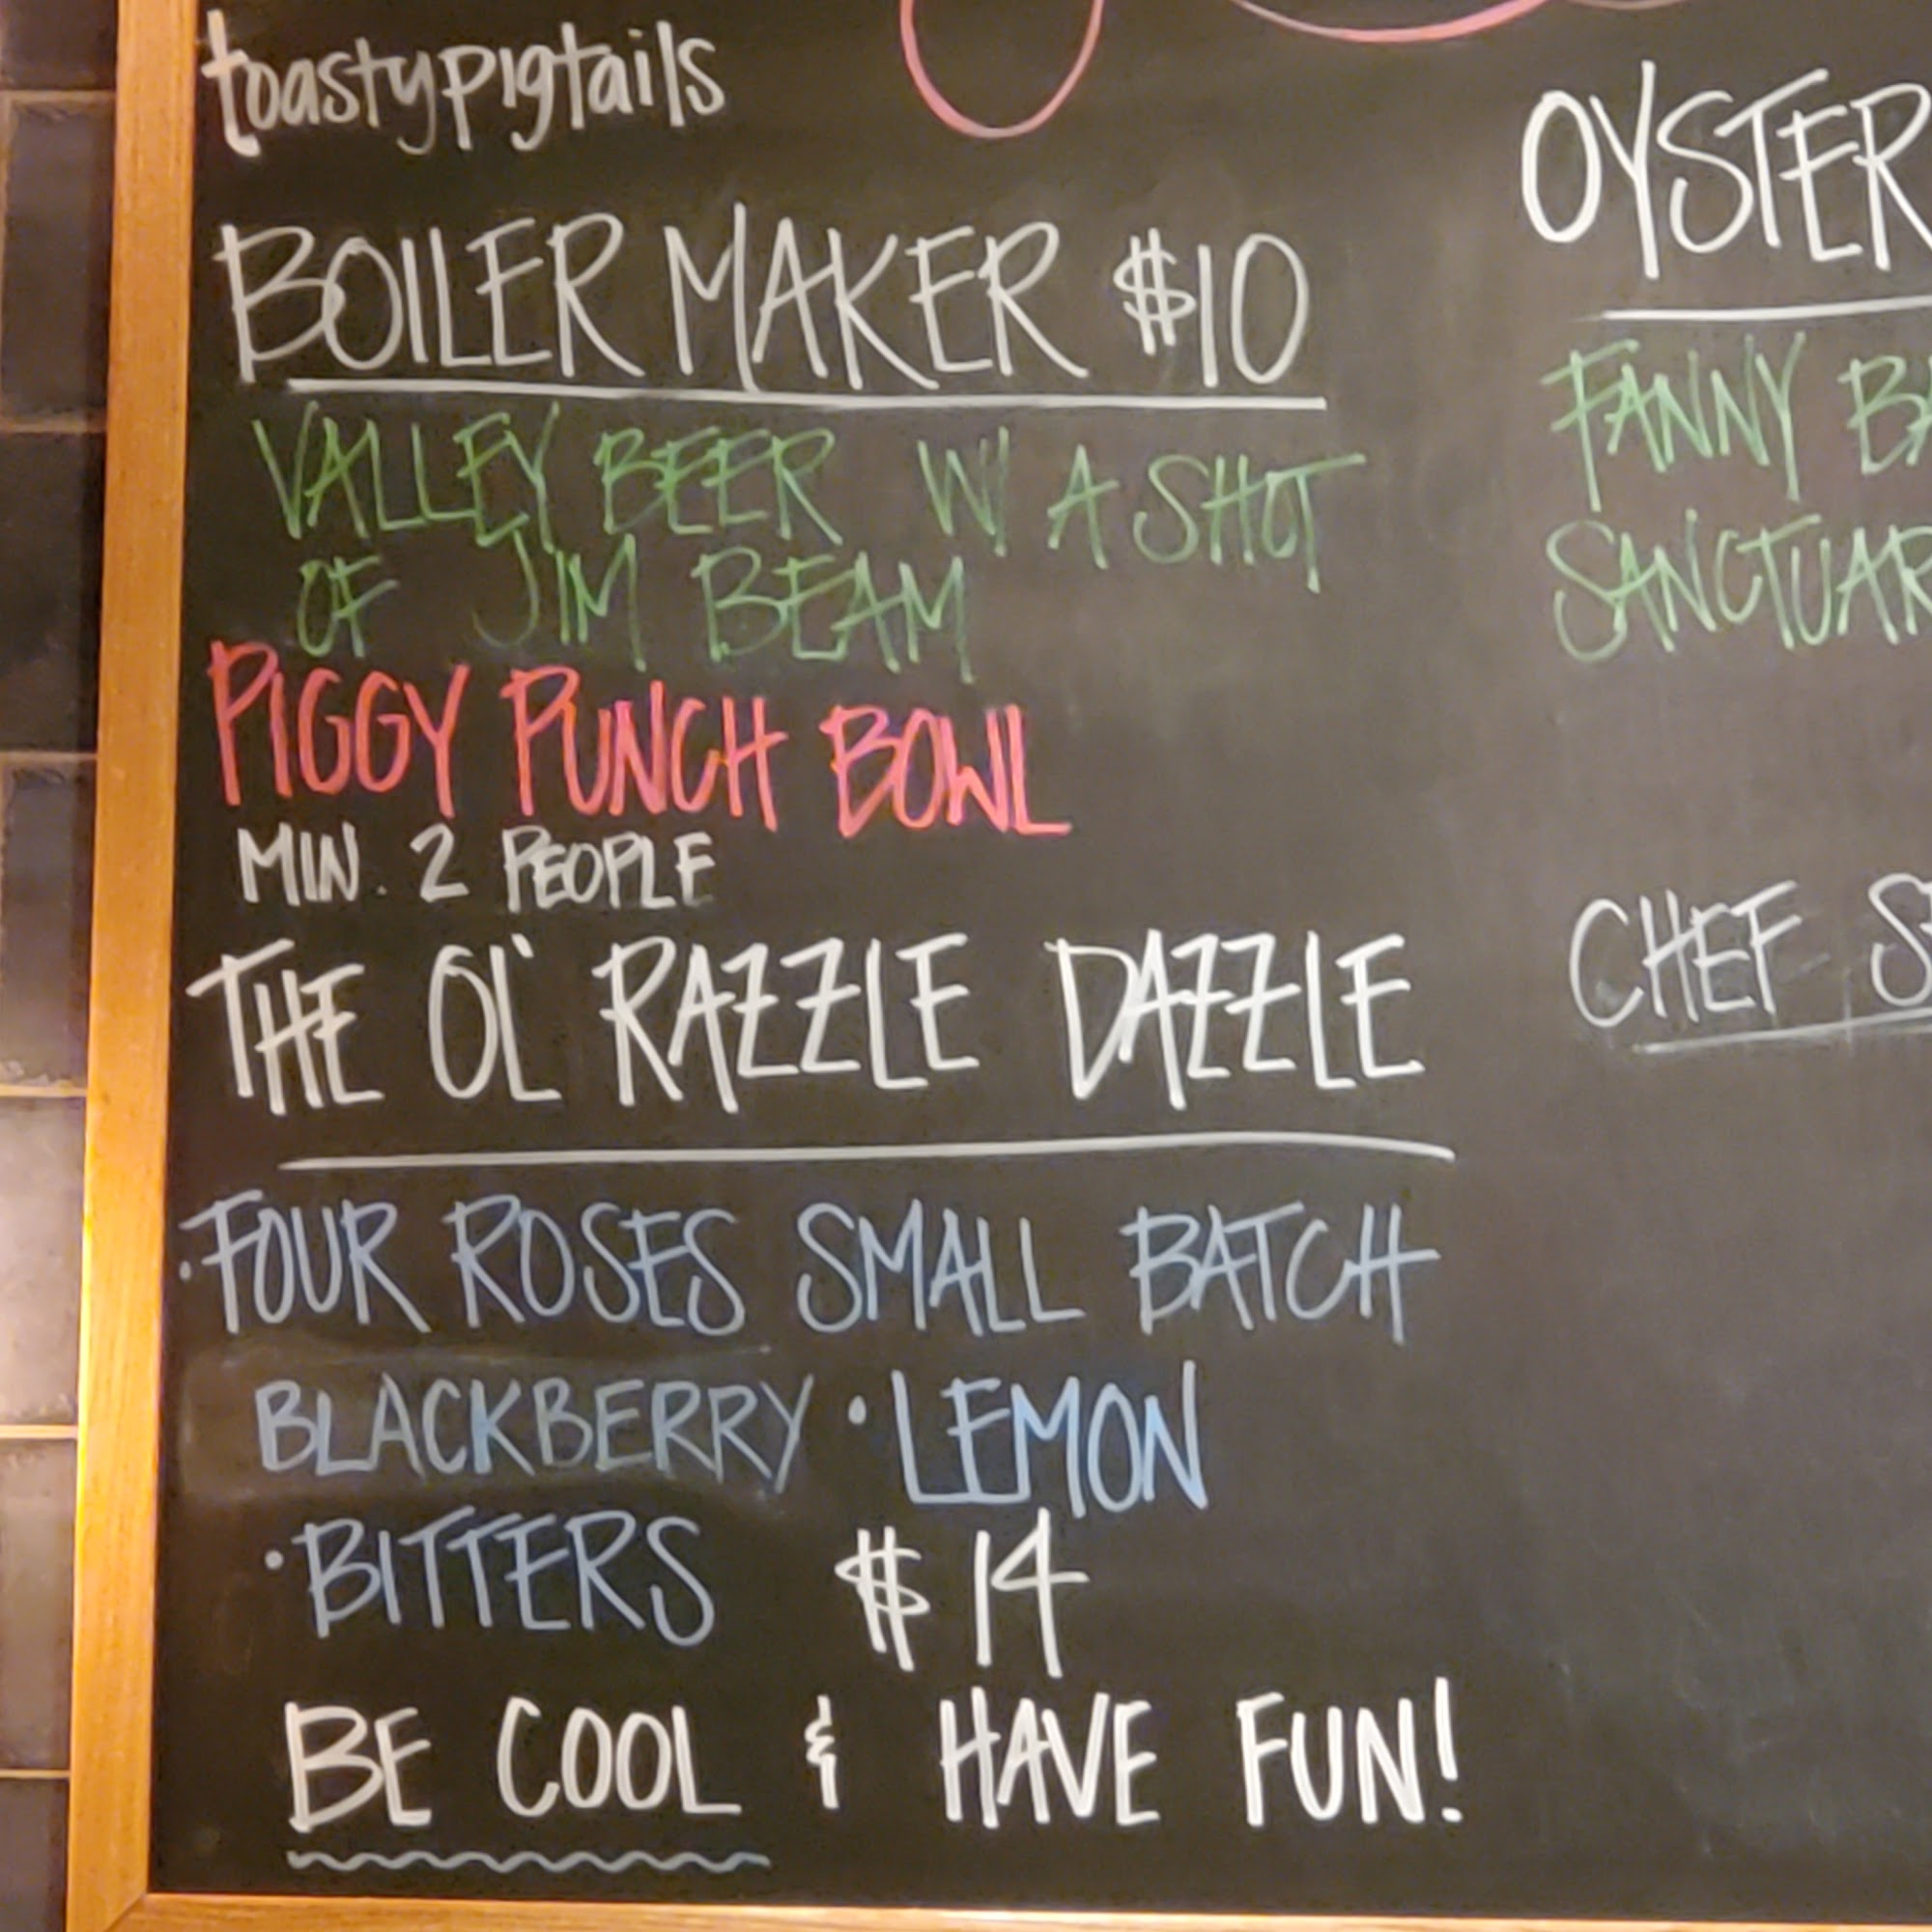 toastypigtails
BOILER MAKER $10
VALLEY BEER W/ A SHOT
OF JIM BEAM
PIGGY PUNCH BOWL
MIN. 2 PEOPLE
THE OL' RAZZLE DAZZLE
·FOUR ROSES SMALL BATCH
BLACKBERRY ·LEMON
·BITTERS $14
BE COOL & HAVE FUN!
OYSTER
FANNY
SANCTUAR
CHEF